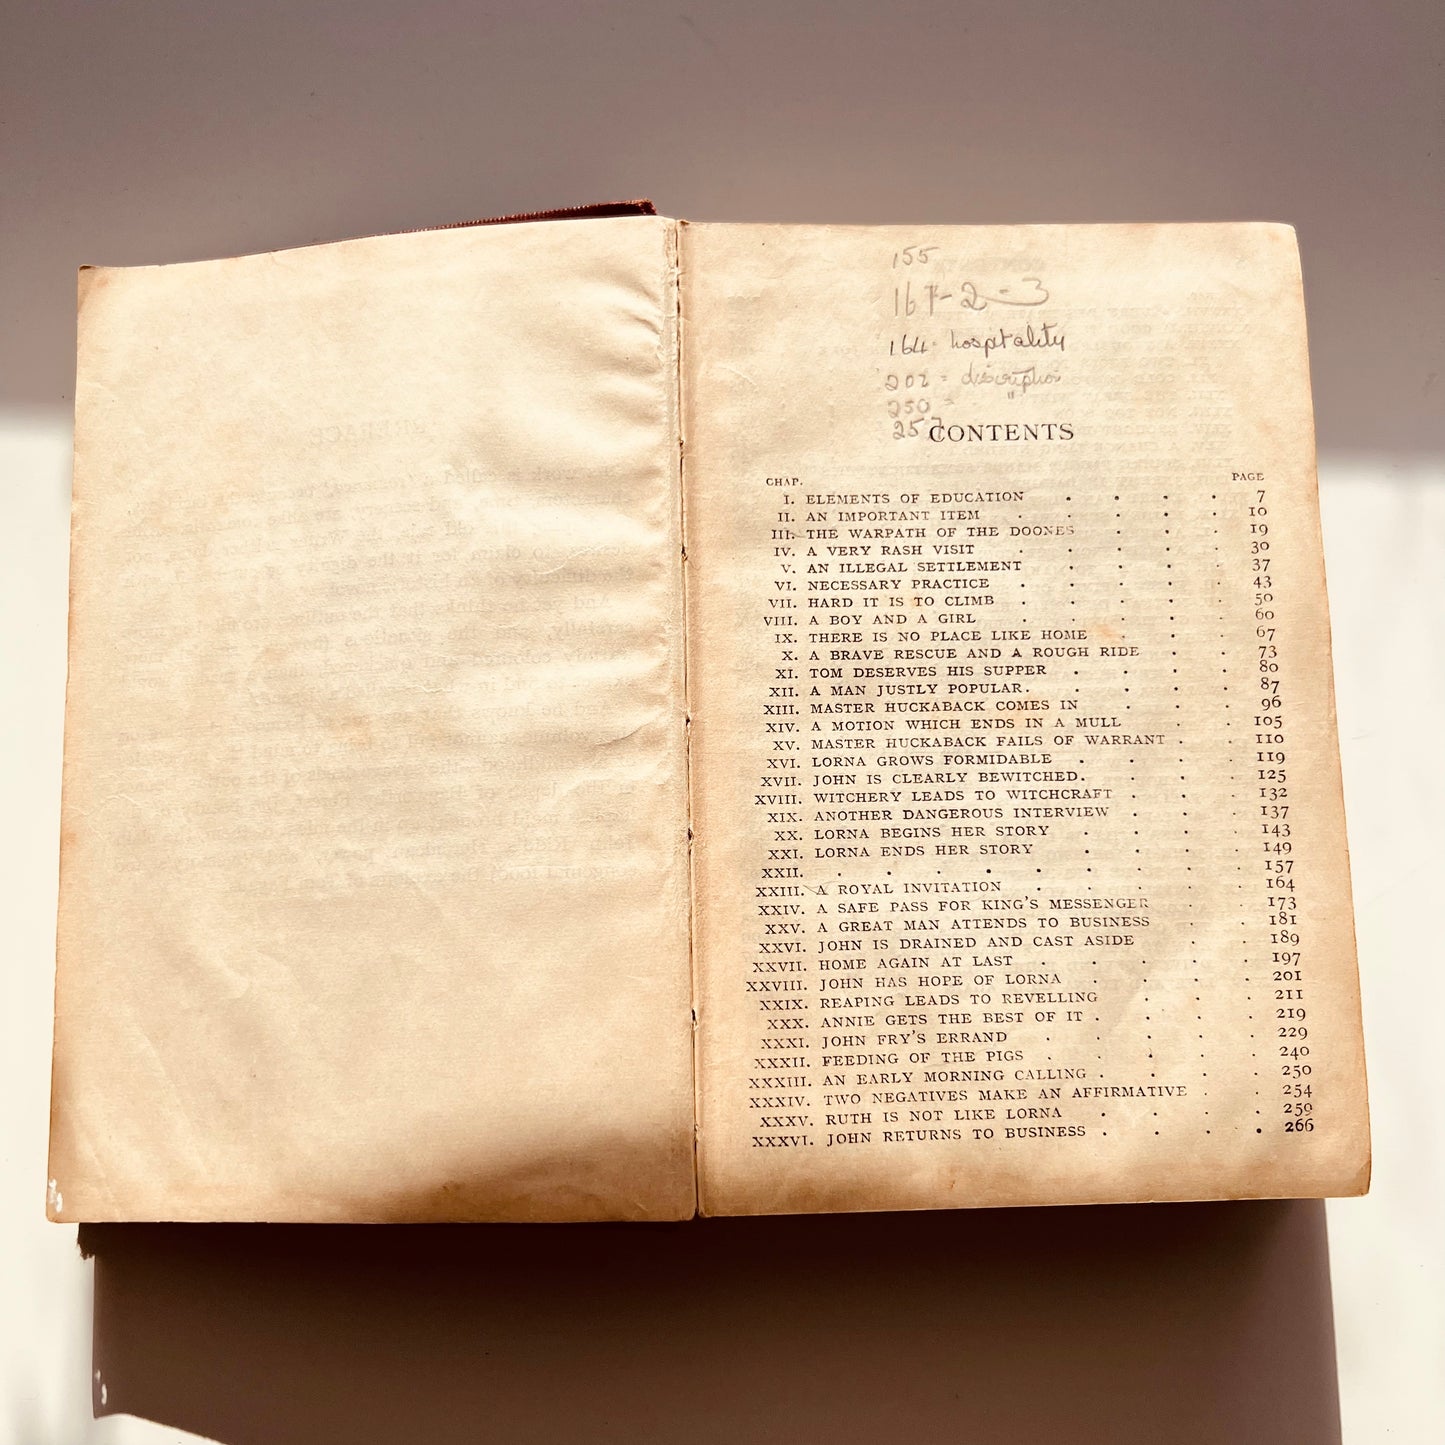 155
164 hospitality
202 = description
250 = "
257
CONTENTS
CHAP. PAGE
I. ELEMENTS OF EDUCATION . . . . 7
II. AN IMPORTANT ITEM . . . . . 10
III. THE WARPATH OF THE DOONES . . . 19
IV. A VERY RASH VISIT . . . . . 30
V. AN ILLEGAL SETTLEMENT . . . . 37
VI. NECESSARY PRACTICE . . . . . 43
VII. HARD IT IS TO CLIMB . . . . . 50
VIII. A BOY AND A GIRL . . . . . 60
IX. THERE IS NO PLACE LIKE HOME . . . 67
X. A BRAVE RESCUE AND A ROUGH RIDE . . 73
XI. TOM DESERVES HIS SUPPER . . . . 80
XII. A MAN JUSTLY POPULAR . . . . . 87
XIII. MASTER HUCKABACK COMES IN . . . 96
XIV. A MOTION WHICH ENDS IN A MULL . . 105
XV. MASTER HUCKABACK FAILS OF WARRANT . . 110
XVI. LORNA GROWS FORMIDABLE . . . . 119
XVII. JOHN IS CLEARLY BEWITCHED . . . . 125
XVIII. WITCHERY LEADS TO WITCHCRAFT . . . 132
XIX. ANOTHER DANGEROUS INTERVIEW . . . 137
XX. LORNA BEGINS HER STORY . . . . 143
XXI. LORNA ENDS HER STORY . . . . 149
XXII. . . . . . . . . . 157
XXIII. A ROYAL INVITATION . . . . . 164
XXIV. A SAFE PASS FOR KING'S MESSENGER . . 173
XXV. A GREAT MAN ATTENDS TO BUSINESS . . 181
XXVI. JOHN IS DRAINED AND CAST ASIDE . . 189
XXVII. HOME AGAIN AT LAST . . . . . 197
XXVIII. JOHN HAS HOPE OF LORNA . . . . 201
XXIX. REAPING LEADS TO REVELLING . . . 211
XXX. ANNIE GETS THE BEST OF IT . . . . 219
XXXI. JOHN FRY'S ERRAND . . . . . 229
XXXII. FEEDING OF THE PIGS . . . . . 240
XXXIII. AN EARLY MORNING CALLING . . . . 250
XXXIV. TWO NEGATIVES MAKE AN AFFIRMATIVE . . 254
XXXV. RUTH IS NOT LIKE LORNA . . . . 259
XXXVI. JOHN RETURNS TO BUSINESS . . . . 266